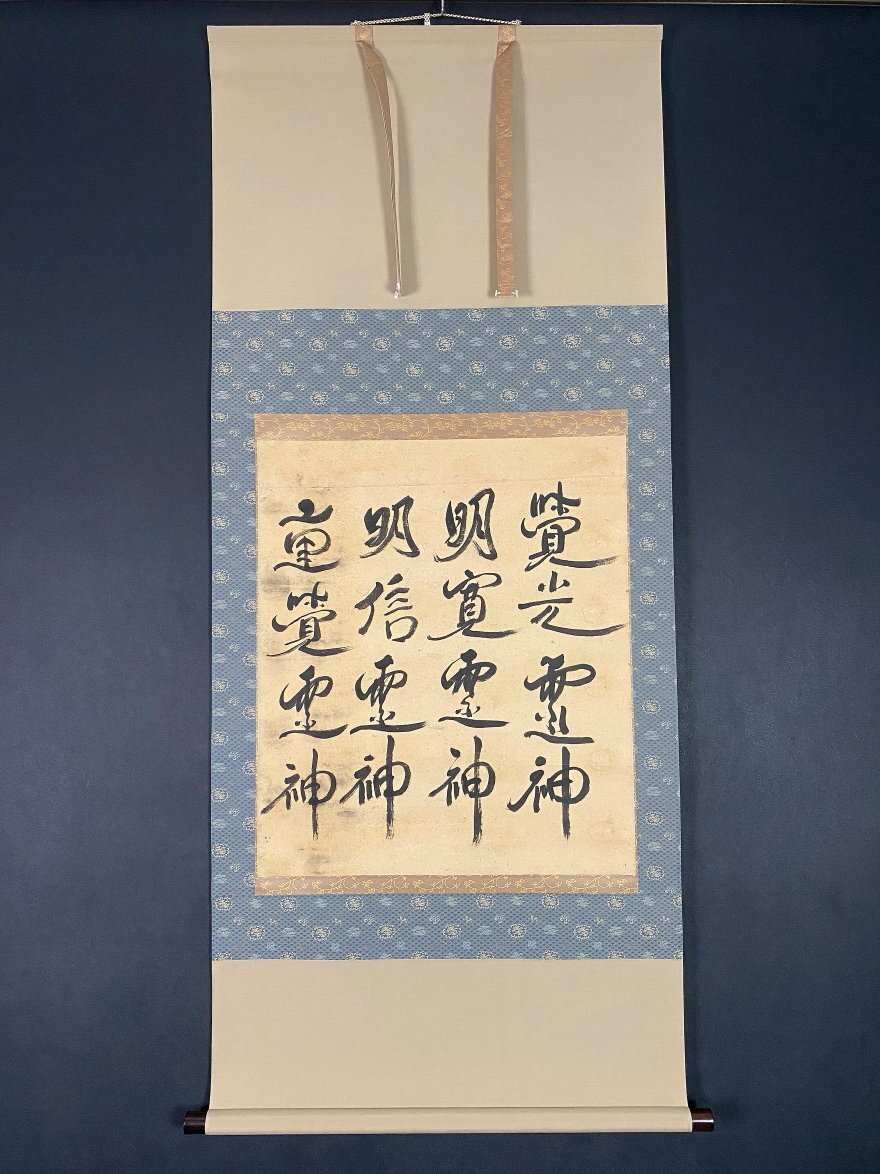 覺光靈神
明寛靈神
明信靈神
重覺靈神